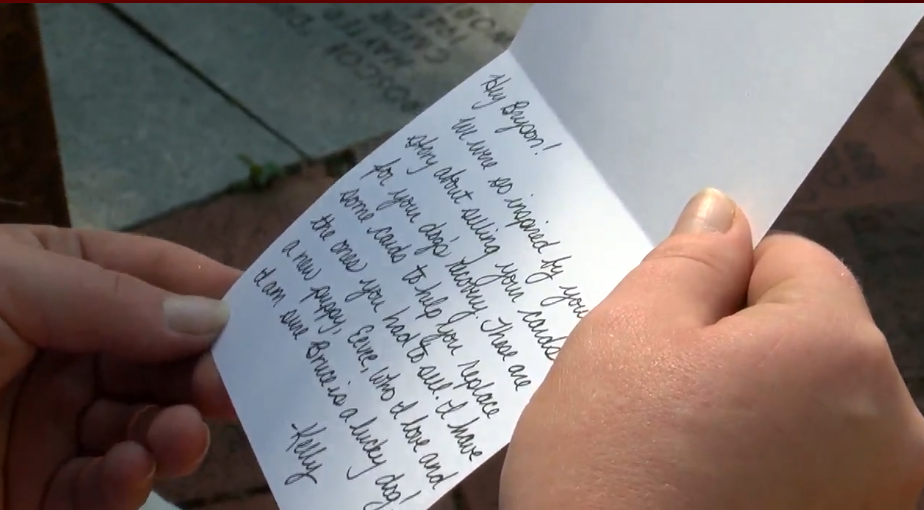 Hey Bryson!
We were so inspired by your
story about selling your cards
for your dog's recovery. These are
some cards to help you replace
the ones you had to sell. I have
a new puppy, Eevie, who I love and
I am sure Bruce is a lucky dog!
-Kelly